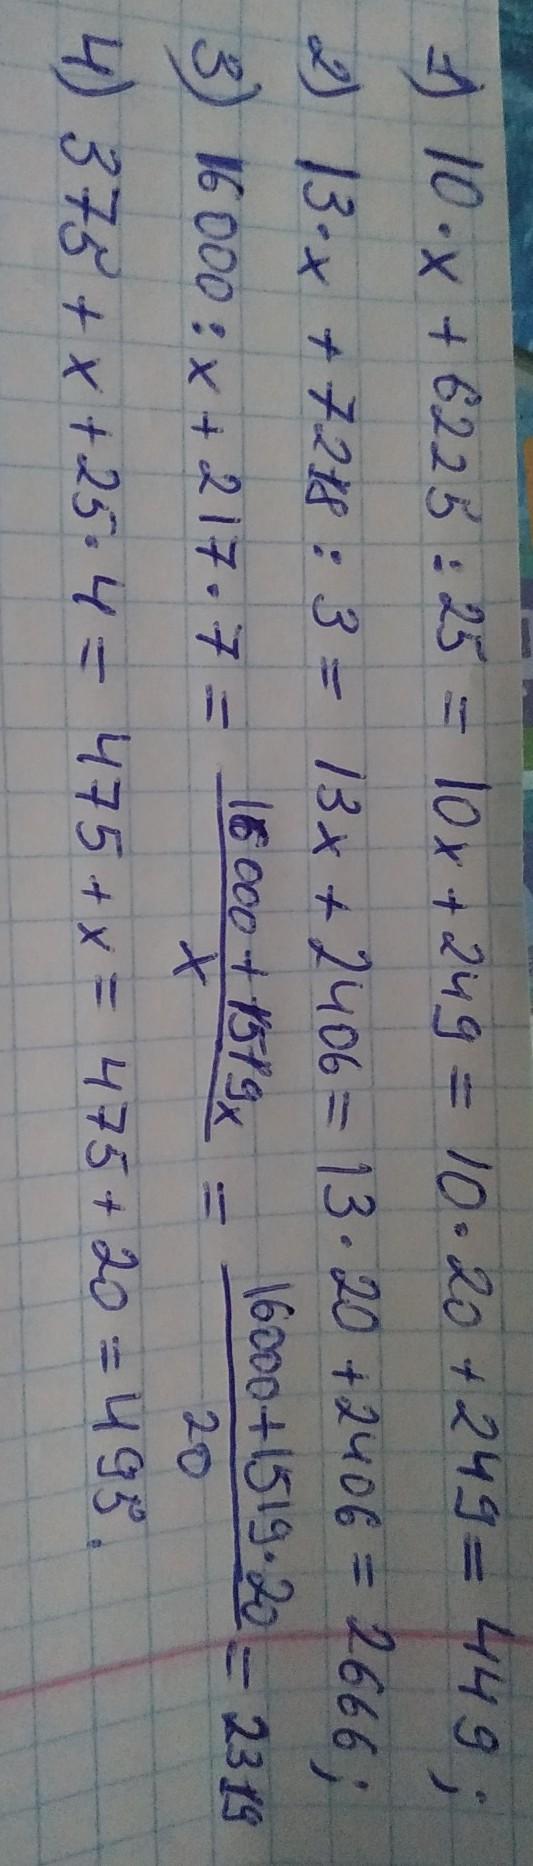 1) 10·x + 6225 : 25 = 10x + 249 = 10·20 + 249 = 449;
2) 13·x + 7218 : 3 = 13x + 2406 = 13·20 + 2406 = 2666;
3) 16000 : x + 217·7 = (16000 + 1519x)/x = (16000 + 1519·20)/20 = 2319
4) 375 + x + 25·4 = 475 + x = 475 + 20 = 495.